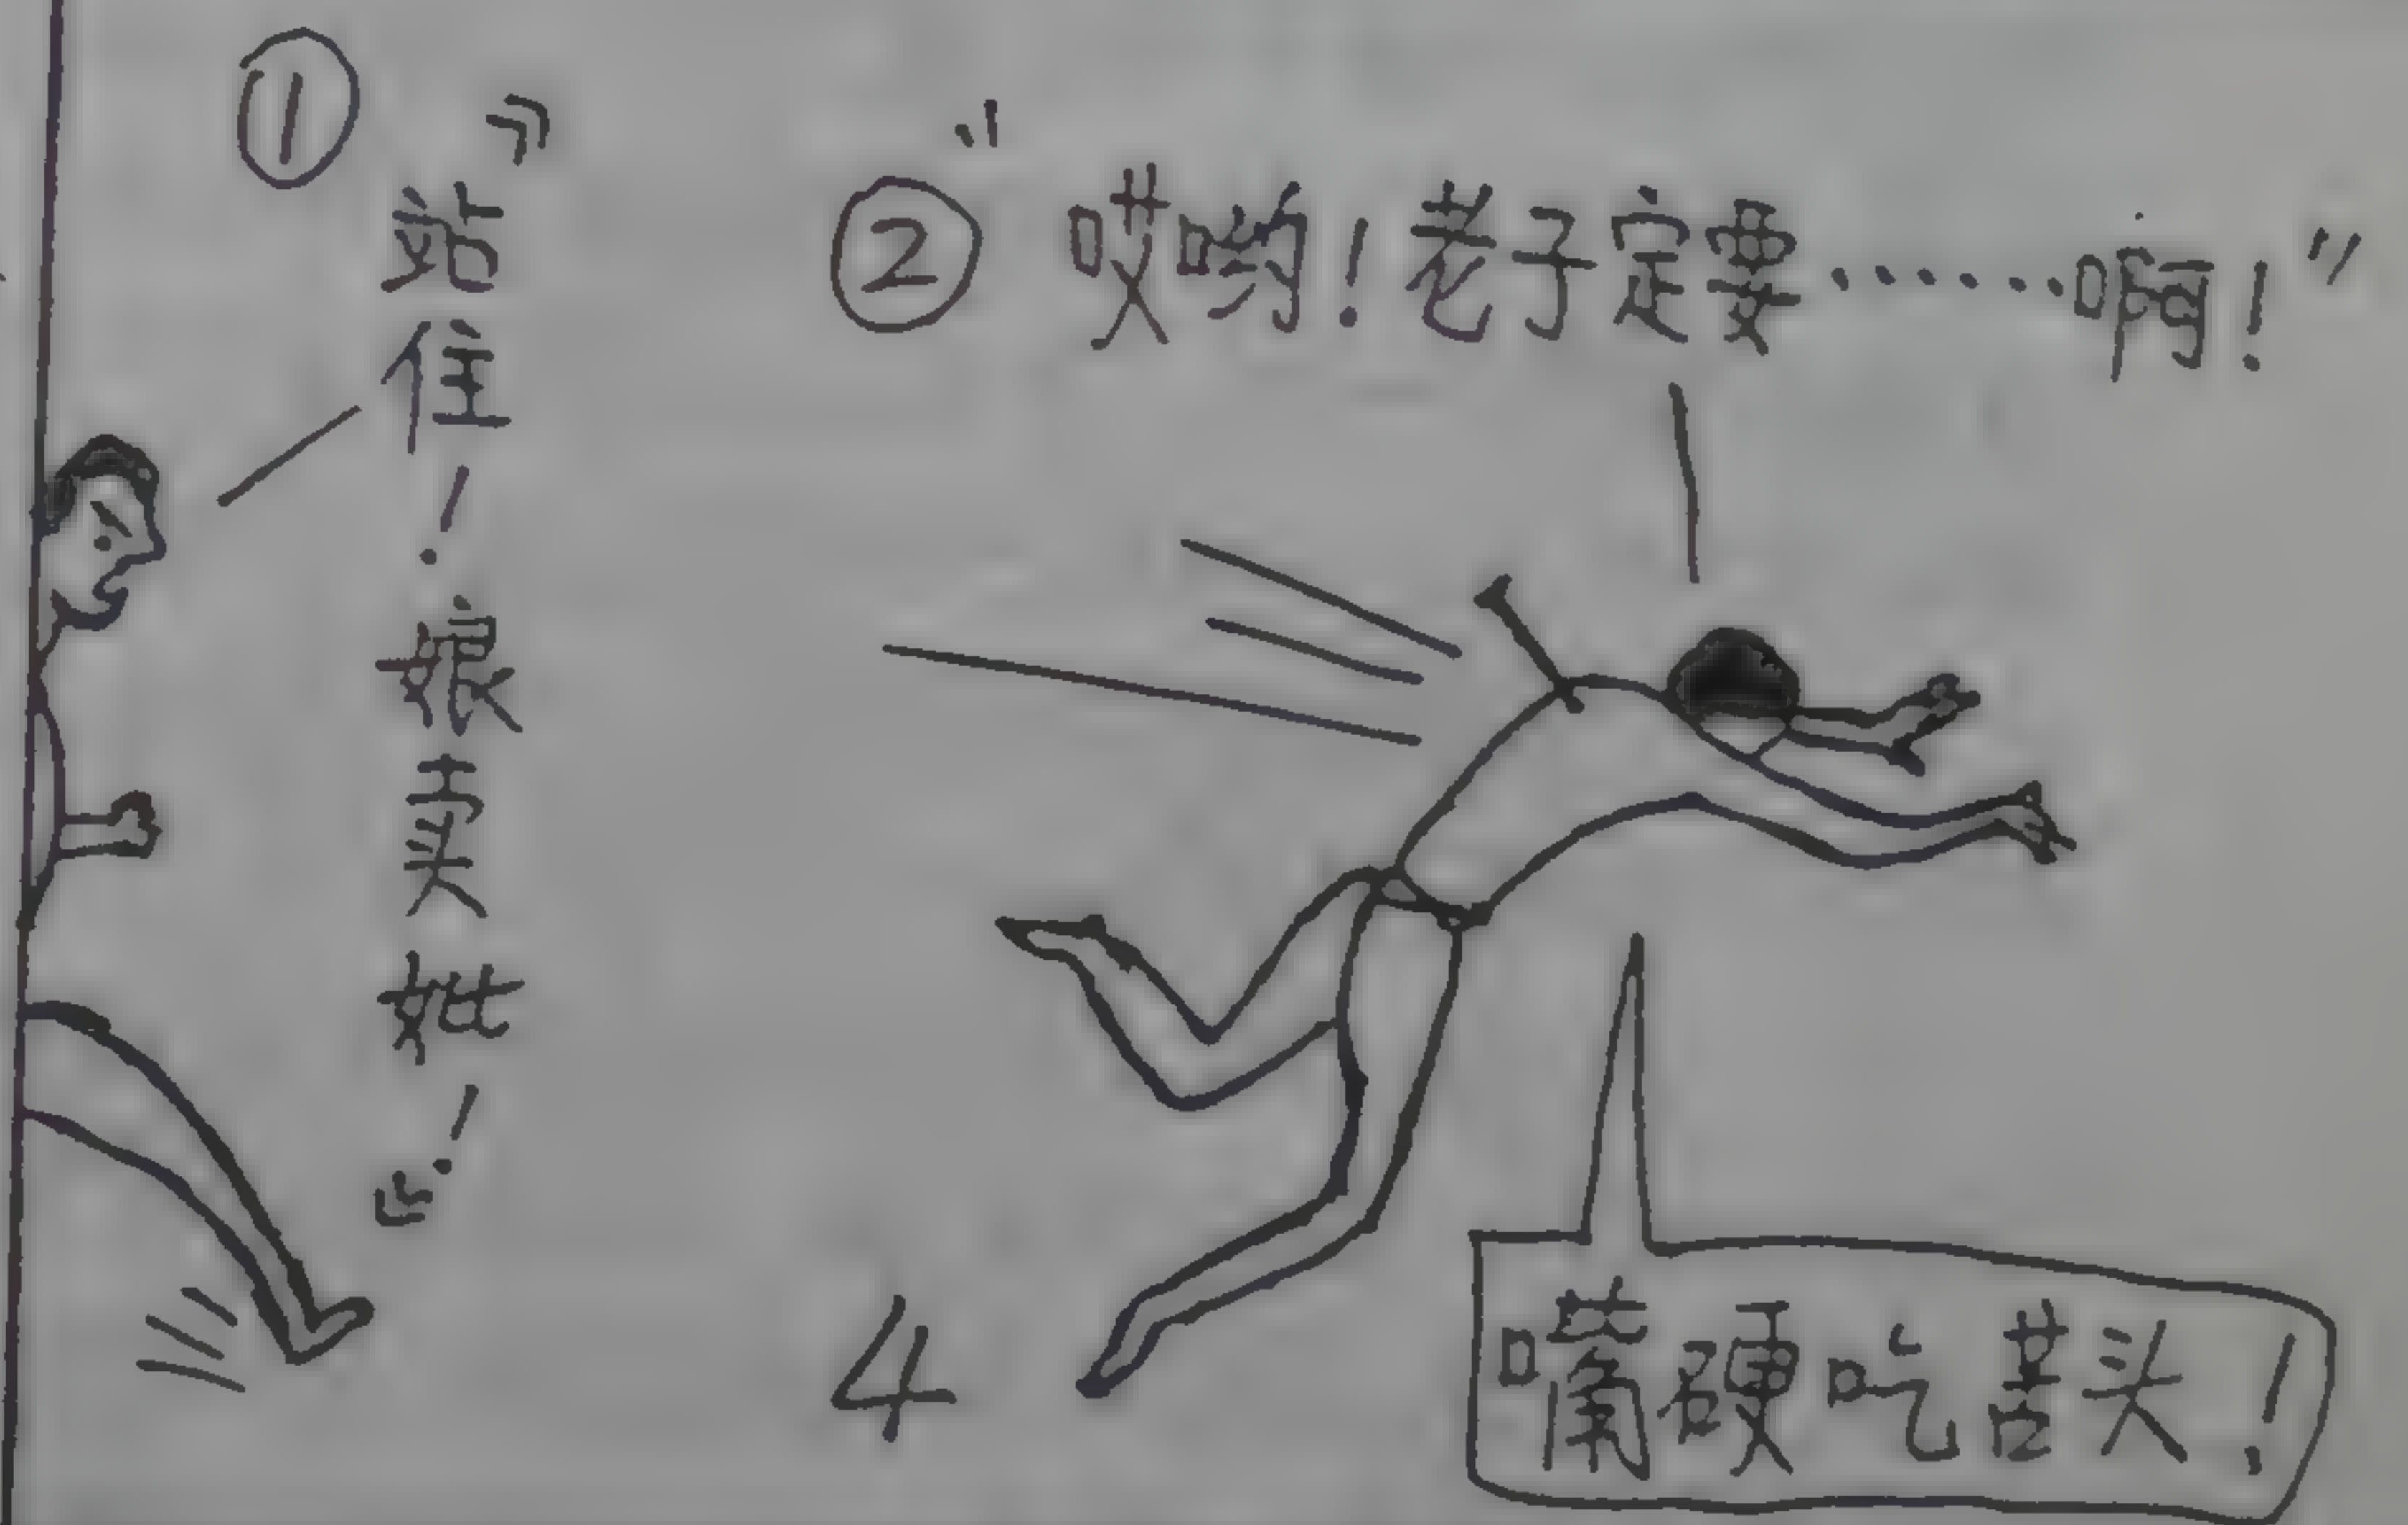 ①
“站住！娘卖妣！”
② “哎哟！老子定要……啊！”
嘴硬吃苦头！
4